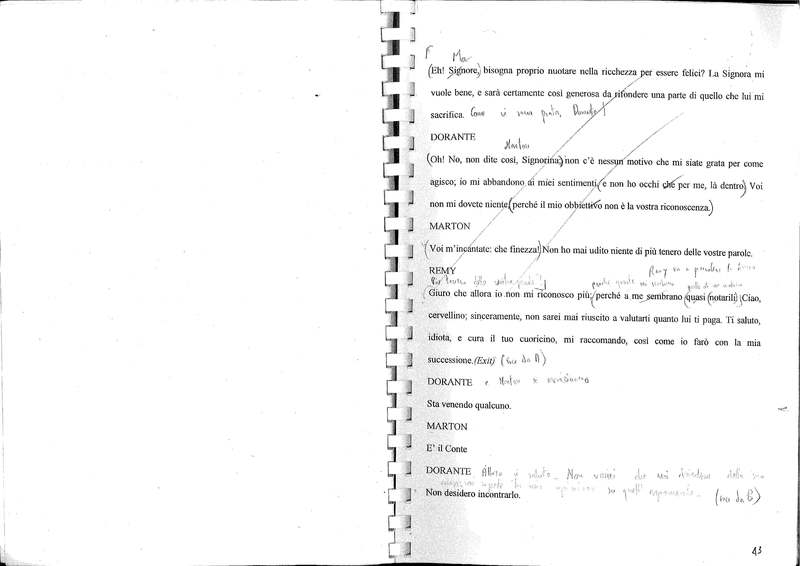 Ma
(Eh! Signore,) bisogna proprio nuotare nella ricchezza per essere felici? La Signora mi
vuole bene, e sarà certamente così generosa da rifondere una parte di quello che lui mi
sacrifica. Come vi sono grata, Dorante!
DORANTE
Marton
(Oh! No, non dite così, Signorina,) non c'è nessun motivo che mi siate grata per come
agisco; io mi abbandono ai miei sentimenti, (e non ho occhi che per me, là dentro) Voi
non mi dovete niente, (perché il mio obbiettivo non è la vostra riconoscenza.)
MARTON
(Voi m'incantate: che finezza!) Non ho mai udito niente di più tenero delle vostre parole.
REMY Remy va a prendere la
Più tenero delle vostre parole
(Giuro che allora io non mi riconosco più; (perché a me sembrano (quasi (notarili) Ciao,
cervellino; sinceramente, non sarei mai riuscito a valutarti quanto lui ti paga. Ti saluto,
idiota, e cura il tuo cuoricino, mi raccomando, così come io farò con la mia
successione.(Exit) (esce da A)
DORANTE e Marton si avvicinano
Sta venendo qualcuno.
MARTON
E' il Conte
DORANTE Allora vi saluto. Non vorrei che mi chiedesse della sua
su quell'argomento. (esce da B)
Non desidero incontrarlo.
43